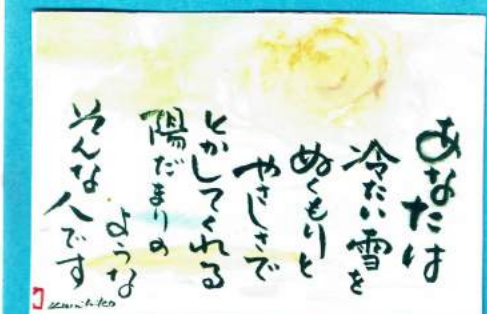 あなたは
冷たい雪を
ぬくもりと
やさしさで
とかしてくれる
陽だまりの
ような
そんな人です